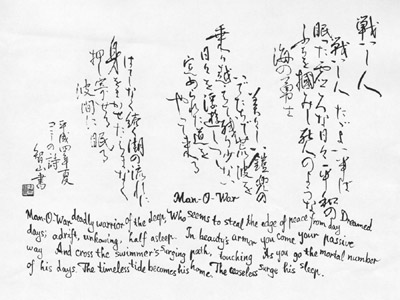 戦い人
戦い人 ただよう
眠った虚ろな日々 平和の
ふちを掴みし死人のような
海の勇士
美しい鎧兜の
いでたちで
乗り越えて残り少い
日々を浮遊し
定められた道を
やってくる
はてしなく続く潮の流れに
身をまかせ
押し寄せる
波間に眠る
平成四年夏
コニーの詩
智山書
Man-O-War
Man-O-War deadly warrior of the deep, Who seems to steal the edge of peace from day Dreamed
days; adrift, unknowing, half asleep. In beauty's armor you come your passive
way And cross the swimmer's surging path, touching As you go the mortal number
of his days. The timeless tide becomes his home. The ceaseless surge his sleep.